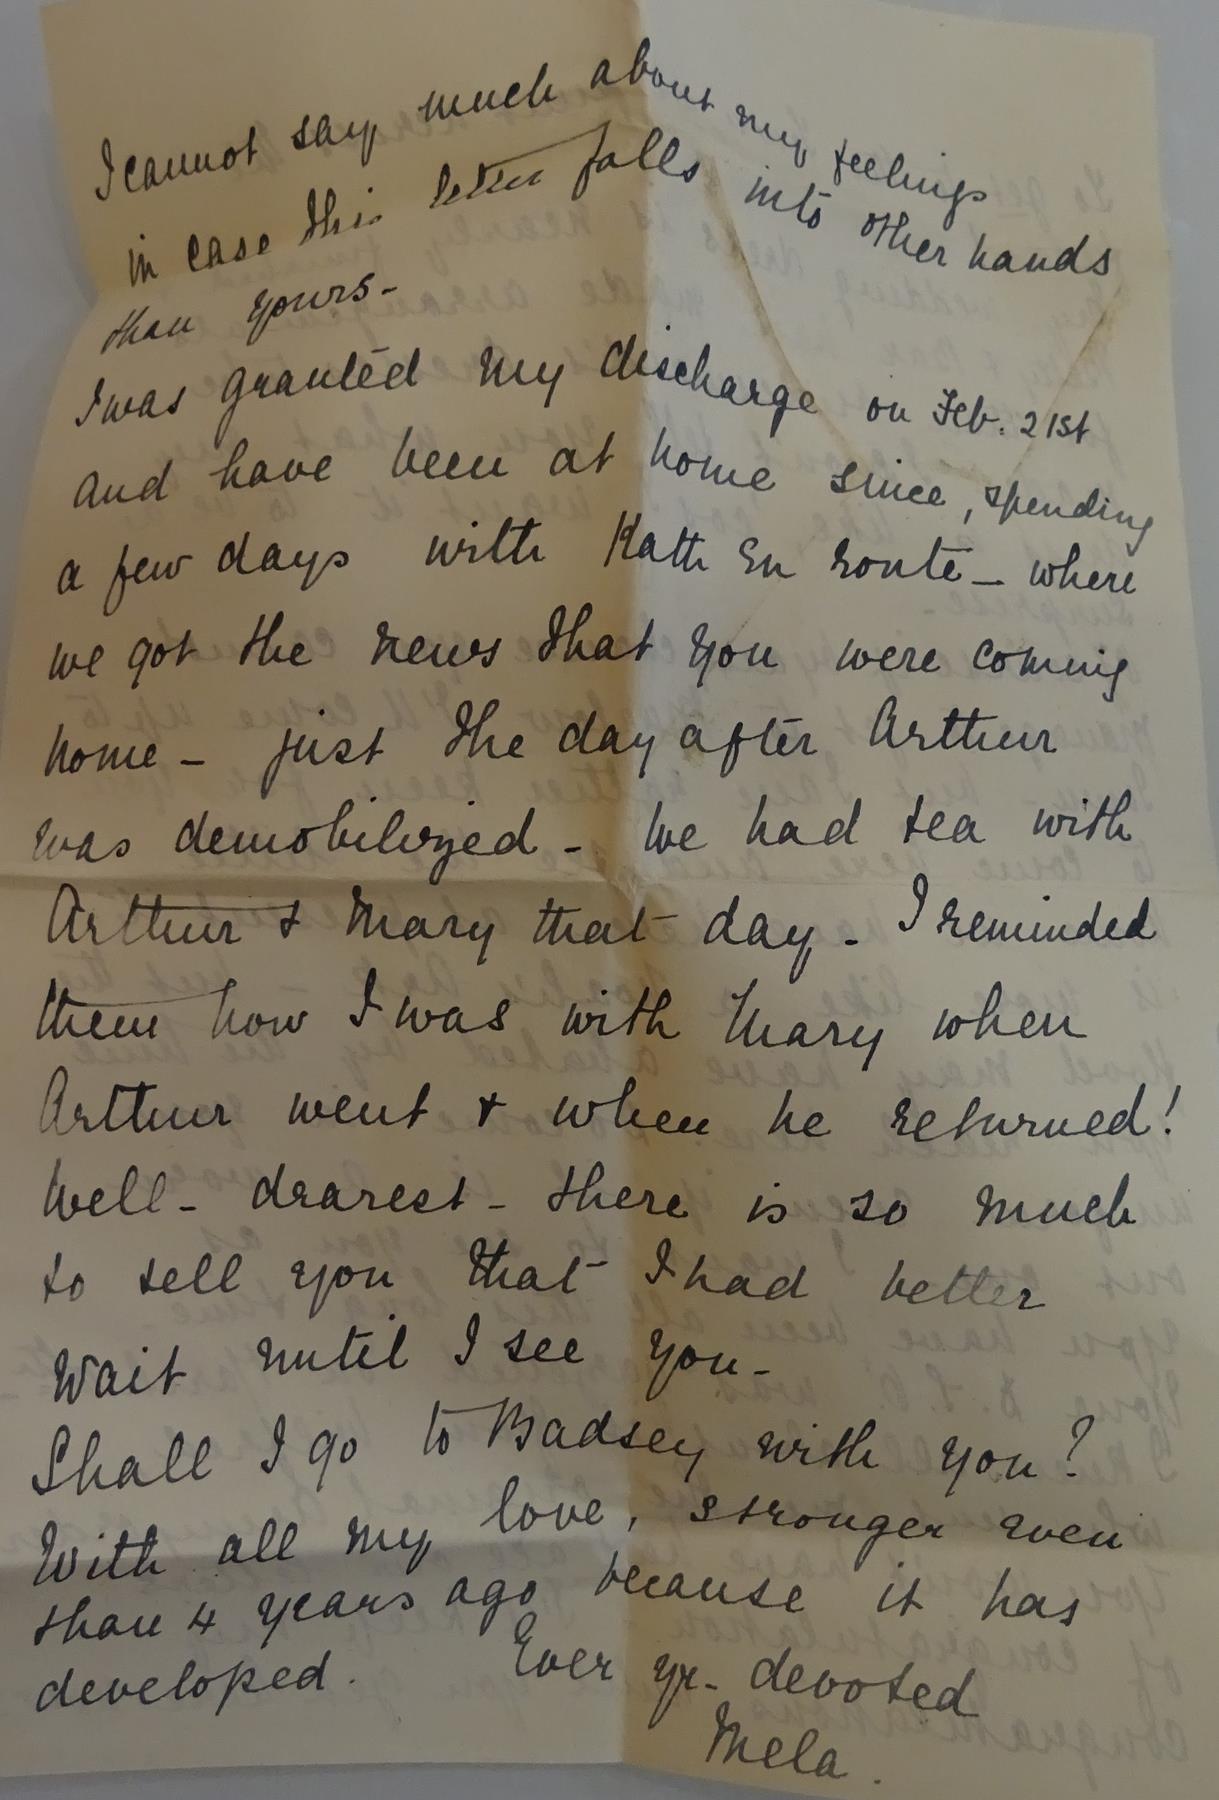 I cannot say much about my feelings
in case this letter falls into other hands
than yours -
I was granted my discharge on Feb. 21st
and have been at home since, spending
a few days with Kath en route - where
we got the news that you were coming
home - just the day after Arthur
was demobilized - We had tea with
Arthur & Mary that day - I reminded
them how I was with Mary when
Arthur went & when he returned!
Well - dearest - there is so much
to tell you that I had better
wait until I see you -
Shall I go to Badsey with you?
With all my love, stronger even
than 4 years ago because it has
developed. Ever yr. devoted
Mela.